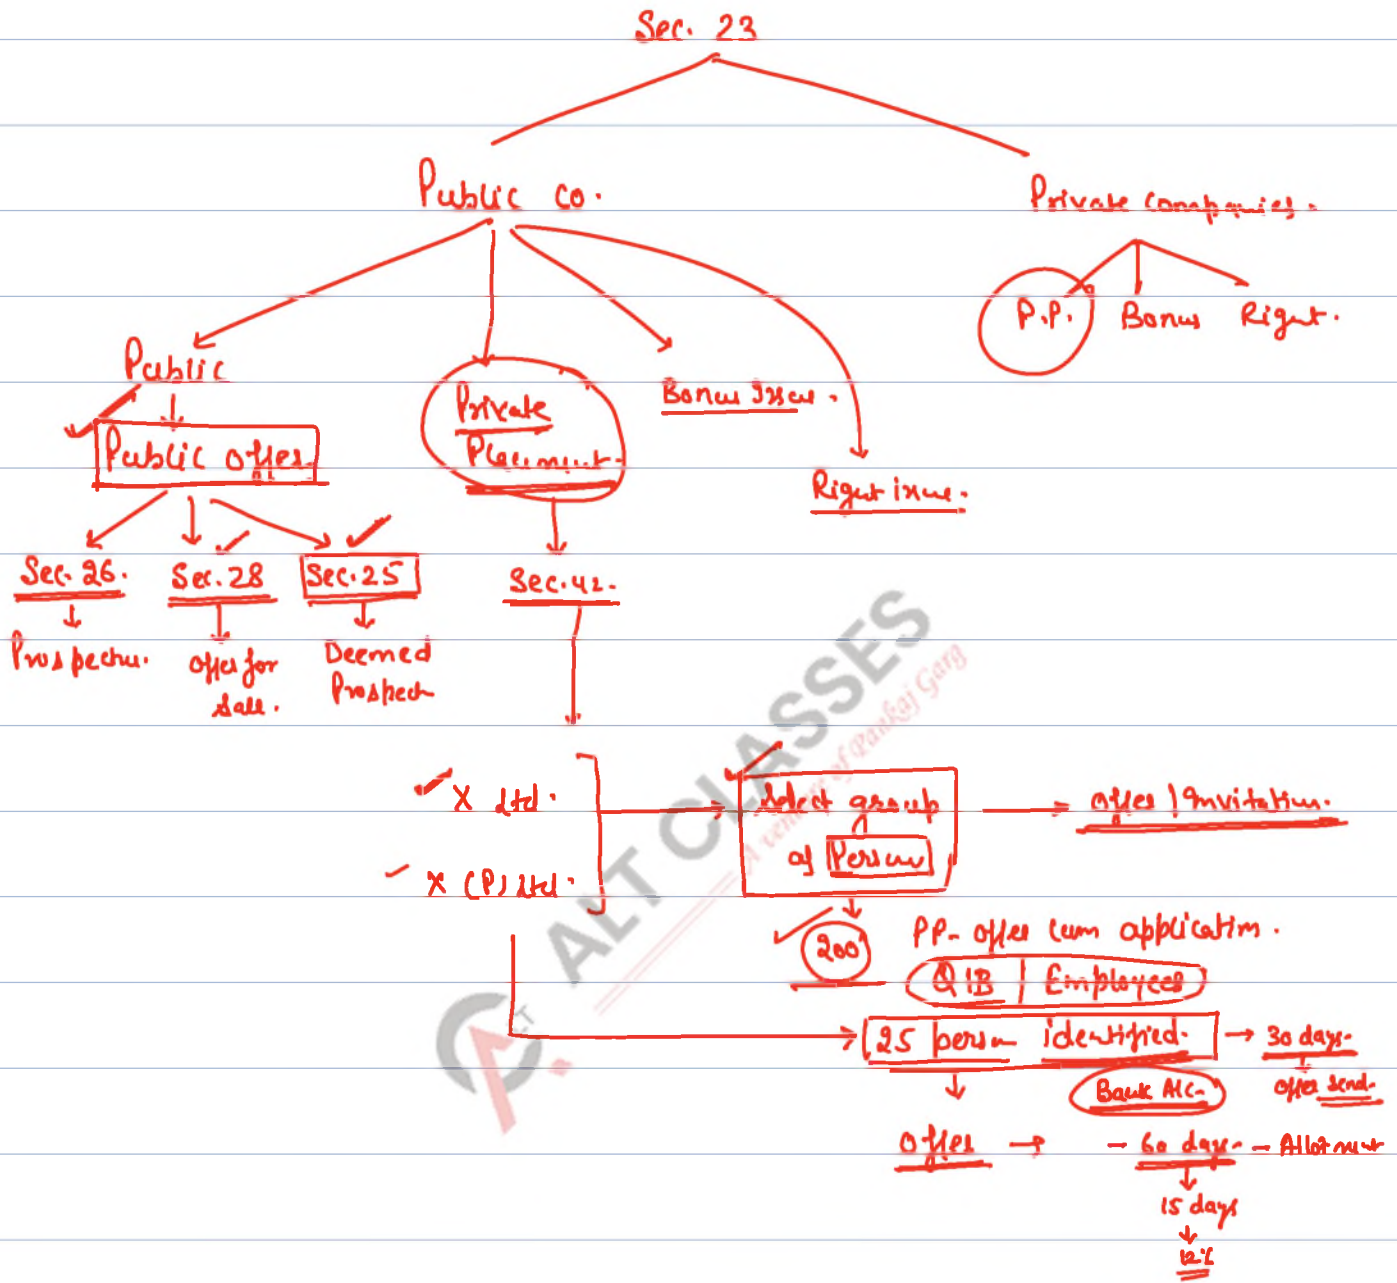 Sec. 23
Public co.
Private Companies.
P.P. Bonus Right.
Public
Public offer
Private
Placement.
Bonus Issue.
Right issue.
Sec. 26. Sec. 28 Sec. 25
Sec. 42.
Prospectu.
offer for
Sale.
Deemed
Prospect
X Ltd.
X (P) Ltd.
Select group
of Person
offer / Invitation.
200
PP- offer cum application.
QIB | Employees
25 person identified. → 30 days.
Bank A/C.
offer send.
offer → - 60 days - Allotment
15 days
12%
ALT CLASSES
A venture of Pankaj Garg